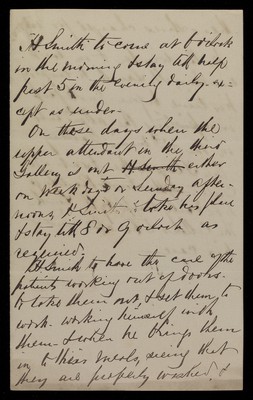 H Smith to come at 6 o'clock
in the morning & stay till half
past 5 in the evening daily. ex-
cept as under.
On those days when the
upper attendant in the third
Gallery is out H Smith either
on week days or Sunday after-
noons, H Smith takes his place
& stay till 8 or 9 o'clock as
required.
H Smith to have the care of the
patients working out of doors.
to take them out, & set them to
work. working himself with
them & when he brings them
in to their meals, seeing that
they are properly washed, &